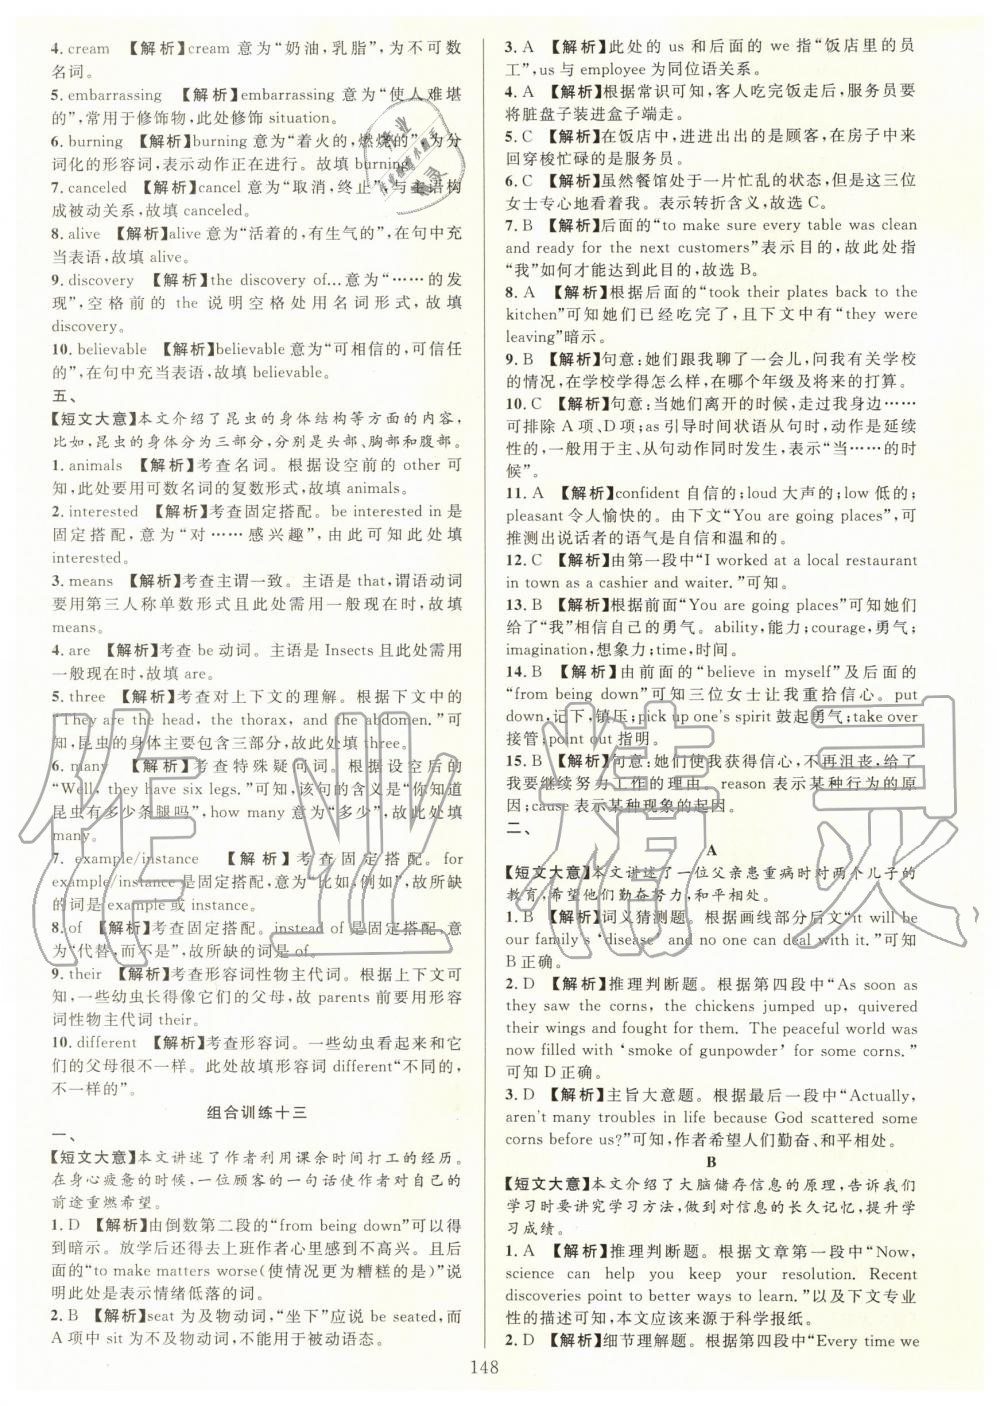 4. cream 【解析】cream 意为“奶油,乳脂”,为不可数
名词。
5. embarrassing 【解析】embarrassing 意为“使人难堪
的”,常用于修饰物,此处修饰 situation。
6. burning 【解析】burning 意为“着火的,燃烧的”,为分
词化的形容词,表示动作正在进行。故填 burning。
7. canceled 【解析】cancel 意为“取消,终止”,与主语构
成被动关系,故填 canceled。
8. alive 【解析】alive 意为“活着的,有生气的”,在句中充
当表语,故填 alive。
9. discovery 【解析】the discovery of…意为“……的发
现”,空格前的 the 说明空格处用名词形式,故填
discovery。
10. believable 【解析】believable 意为“可相信的,可信任
的”,在句中充当表语,故填 believable。
五、
【短文大意】本文介绍了昆虫的身体结构等方面的内容,
比如,昆虫的身体分为三部分,分别是头部、胸部和腹部。
1. animals 【解析】考查名词。根据设空前的 other 可
知,此处要用可数名词的复数形式,故填 animals。
2. interested 【解析】考查固定搭配。be interested in 是
固定搭配,意为“对……感兴趣”,由此可知此处填
interested。
3. means 【解析】考查主谓一致。主语是 that,谓语动词
要用第三人称单数形式且此处需用一般现在时,故填
means。
4. are 【解析】考查 be 动词。主语是 Insects 且此处需用
一般现在时,故填 are。
5. three 【解析】考查对上下文的理解。根据下文中的
“They are the head, the thorax, and the abdomen.”可
知,昆虫的身体主要包含三部分,故此处填 three。
6. many 【解析】考查特殊疑问词。根据设空后的
“Well, they have six legs.”可知,该句的含义是“你知道
昆虫有多少条腿吗”,how many 意为“多少”,故填
many。
7. example/instance 【解析】考查固定搭配。for
example/instance 是固定搭配,意为“比如,例如”,故所缺
的词是 example 或 instance。
8. of 【解析】考查固定搭配。instead of 是固定搭配,意
为“代替,而不是”,故所缺的词是 of。
9. their 【解析】考查形容词性物主代词。根据上下文可
知,一些幼虫长得像它们的父母,故 parents 前要用形容
词性物主代词 their。
10. different 【解析】考查形容词。一些幼虫看起来和它
们的父母很不一样。此处故填形容词 different“不同的,
不一样的”。
组合训练十三
一、
【短文大意】本文讲述了作者利用课余时间打工的经历。
在身心疲惫的时候,一位顾客的一句话使作者对自己的
前途重燃希望。
1. D 【解析】由倒数第二段的“from being down”可以得
到暗示。放学后还得去上班作者心里感到不高兴。且后
面的“to make matters worse(使情况更为糟糕的是)”说
明此处是表示情绪低落的词。
2. B 【解析】seat 为及物动词,“坐下”应说 be seated,而
A 项中 sit 为不及物动词,不能用于被动语态。
3. A 【解析】此处的 us 和后面的 we 指“饭店里的员
工”,us 与 employee 为同位语关系。
4. A 【解析】根据常识可知,客人吃完饭走后,服务员要
将脏盘子装进盒子端走。
5. C 【解析】在饭店中,进进出出的是顾客,在房子中来
回穿梭忙碌的是服务员。
6. C 【解析】虽然餐馆处于一片忙乱的状态,但是这三位
女士专心地看着我。表示转折含义,故选 C。
7. B 【解析】后面的“to make sure every table was clean
and ready for the next customers”表示目的,故此处指
“我”如何才能达到此目的,故选 B。
8. A 【解析】根据后面的“took their plates back to the
kitchen”可知她们已经吃完了,且下文中有“they were
leaving”暗示。
9. B 【解析】句意:她们跟我聊了一会儿,问我有关学校
的情况,在学校学得怎么样,在哪个年级及将来的打算。
10. C 【解析】句意:当她们离开的时候,走过我身边……
可排除 A 项、D 项;as 引导时间状语从句时,动作是延续
性的,一般用于主、从句动作同时发生,表示“当……的时
候”。
11. A 【解析】confident 自信的;loud 大声的;low 低的;
pleasant 令人愉快的。由下文“You are going places”,可
推测出说话者的语气是自信和温和的。
12. C 【解析】由第一段中“I worked at a local restaurant
in town as a cashier and waiter.”可知。
13. B 【解析】根据前面“You are going places”可知她们
给了“我”相信自己的勇气。ability,能力;courage,勇气;
imagination,想象力;time,时间。
14. B 【解析】由前面的“believe in myself”及后面的
“from being down”可知三位女士让我重拾信心。put
down,记下,镇压;pick up one's spirit 鼓起勇气;take over
接管;point out 指明。
15. B 【解析】句意:她们使我获得信心,不再沮丧,给了
我要继续努力工作的理由。reason 表示某种行为的原
因;cause 表示某种现象的起因。
二、
A
【短文大意】本文讲述了一位父亲患重病时对两个儿子的
教育,希望他们勤奋努力,和平相处。
1. B 【解析】词义猜测题。根据画线部分后文“it will be
our family's ‘disease’ and no one can deal with it”可知
B 正确。
2. D 【解析】推理判断题。根据第四段中“As soon as
they saw the corns, the chickens jumped up, quivered
their wings and fought for them. The peaceful world was
now filled with ‘smoke of gunpowder’ for some corns.”
可知 D 正确。
3. D 【解析】主旨大意题。根据最后一段中“Actually,
aren't many troubles in life because God scattered some
corns before us?”可知,作者希望人们勤奋、和平相处。
B
【短文大意】本文介绍了大脑储存信息的原理,告诉我们
学习时要讲究学习方法,做到对信息的长久记忆,提升学
习成绩。
1. A 【解析】推理判断题。根据文章第一段中“Now,
science can help you keep your resolution. Recent
discoveries point to better ways to learn.”以及下文专业
性的描述可知,本文应该来源于科学报纸。
2. D 【解析】细节理解题。根据第四段中“Every time we
148
作业精灵